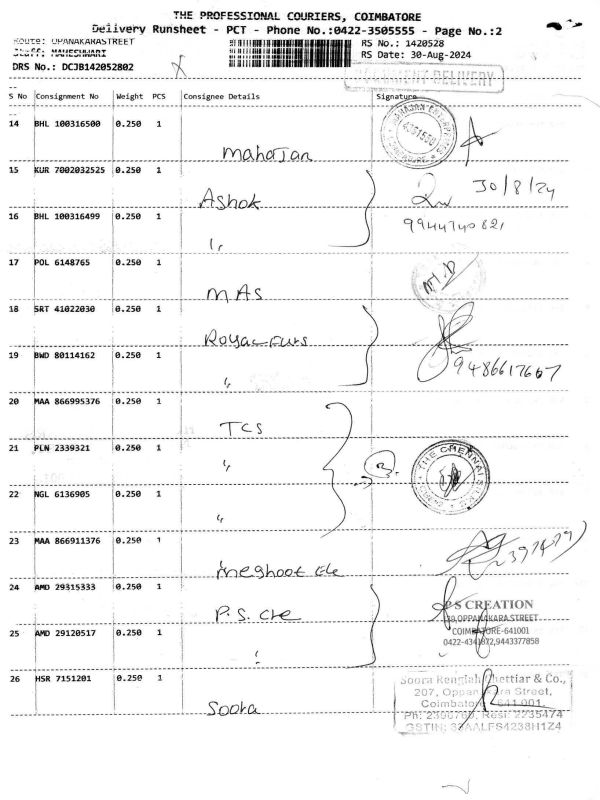 THE PROFESSIONAL COURIERS, COIMBATORE
Delivery Runsheet - PCT - Phone No.:0422-3505555 - Page No.:2
Route: OPANAKARASTREET
RS No.: 1420528
Staff: MAHESHWARI
RS Date: 30-Aug-2024
DRS No.: DCJB142052802
DOCUMENT DELIVERY
S No Consignment No Weight PCS Consignee Details Signature
14 BHL 100316500 0.250 1 Mahajan
15 KUR 7002032525 0.250 1 Ashok 30/8/24
16 BHL 100316499 0.250 1 " 9944740821
17 POL 6148765 0.250 1 MAS
18 SRT 41022030 0.250 1 Royal Furs
19 BWD 80114162 0.250 1 " 9486617667
20 MAA 866995376 0.250 1 TCS
21 PLN 2339321 0.250 1 " 3. THE CHENNAI
22 NGL 6136905 0.250 1 "
23 MAA 866911376 0.250 1 Meghoot Ele
24 AMD 29315333 0.250 1 P.S. Cre
P S CREATION
OPPANAKARA STREET
25 AMD 29120517 0.250 1 "
COIMBATORE-641001
9443377858
26 HSR 7151201 0.250 1 Soora
Soora Rengiah Chettiar & Co.,
207, Oppanakara Street,
Coimbatore 641 001.
Resi: 2235474
GSTIN: 33AALFS4238H1Z4